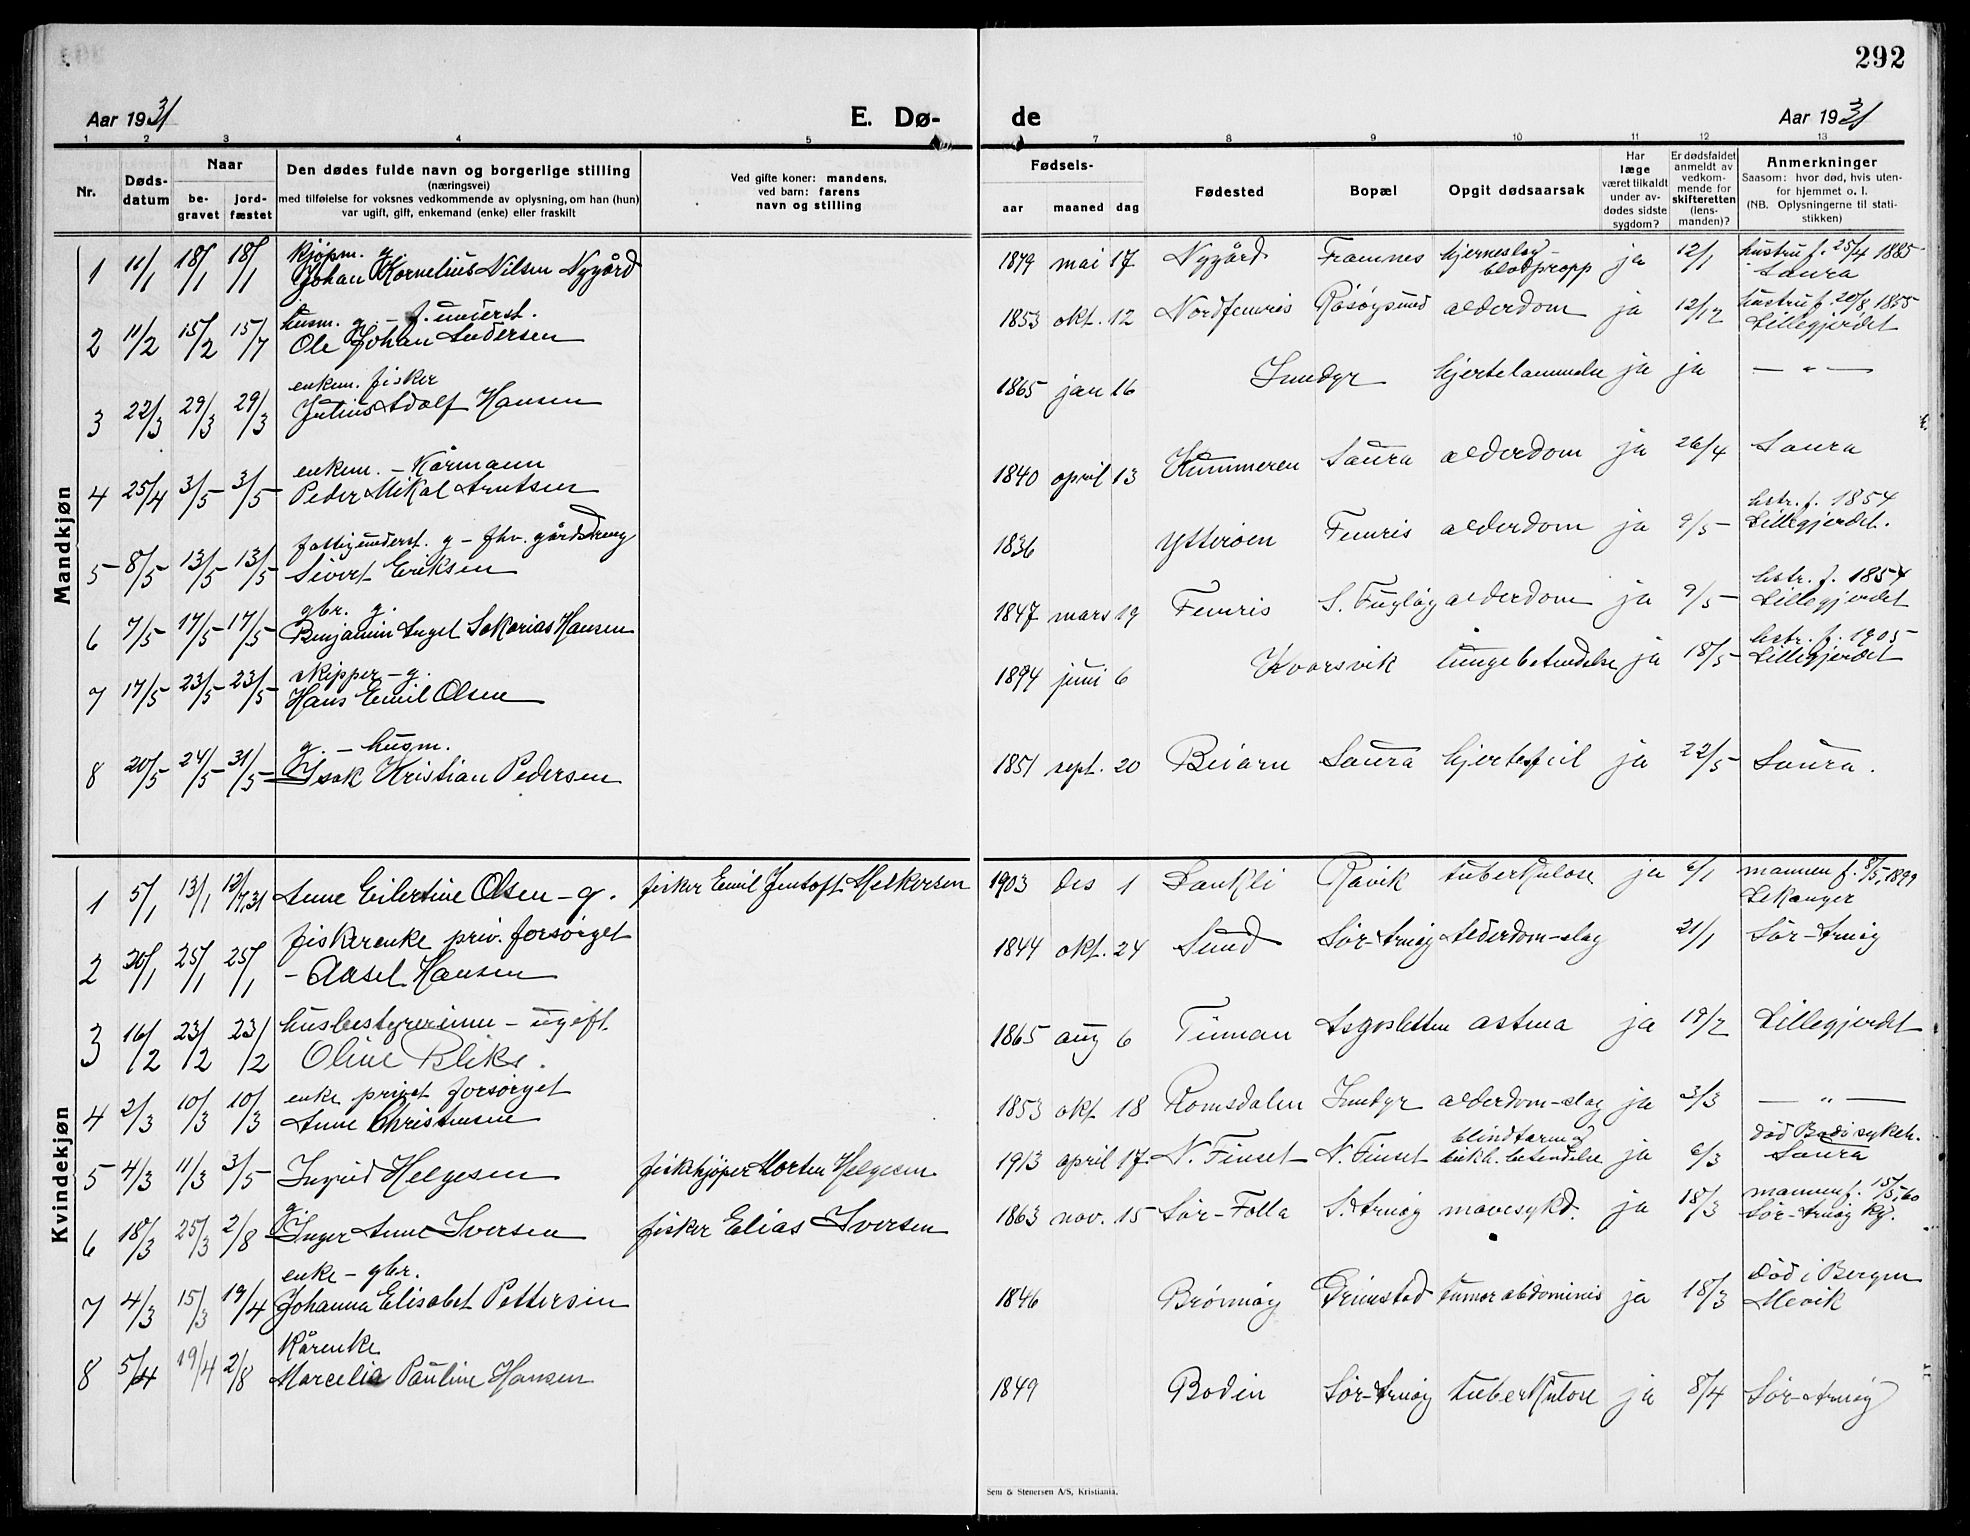 292
Aar 1931
E. Dø-
de
Aar 1931
1 2 3 4 5 7 8 9 10 11 12 13
Nr.
Døds-
datum
Naar
be-
gravet
jord-
fæstet
Den dødes fulde navn og borgerlige stilling
(næringsvei)
med tilføielse for voksnes vedkommende av oplysning, om han (hun)
var ugift, gift, enkemand (enke) eller fraskilt
Ved gifte koner: mandens,
ved barn: farens
navn og stilling
Fødsels-
aar maaned dag
Fødested
Bopæl
Opgit dødsaarsak
Har
læge
været tilkaldt
under av-
dødes sidste
sygdom?
Er dødsfaldet
anmeldt av
vedkom-
mende for
skifteretten
(lens-
manden)?
Anmerkninger
Saasom: hvor død, hvis uten-
for hjemmet o. l.
(NB. Oplysningerne til stati-
stikken)
Mandkjøn
kjøpm. g. hjerneslag - hustru f. 25/4 1885
1 11/1 18/1 18/1 Johan Kornelius Nilsen Nygård 1879 mai 17 Nygård Framnes blodpropp ja 12/1 Saura
husm. g. - f. underst. hustru f. 20/8 1855
2 11/2 15/2 15/7 Ole Johan Andersen 1853 okt. 12 Nordfemris Råsøysund alderdom ja 12/12 Lillegjerdet
enkem. fisker
3 22/3 29/3 29/3 Julius Adolf Hansen 1865 jan 16 Inndyr hjertelammelse ja ja — " —
enkem. - Kårmann
4 25/4 3/5 3/5 Peder Mikal Arntsen 1840 april 13 Kummeren Saura alderdom ja 26/4 Saura
fattigunderst. g - fhv. gårdbrug hstr. f. 1854
5 8/5 13/5 13/5 Sivert Eriksen 1836 Ytterøen Femris alderdom ja 9/5 Lillegjerdet.
gbr. g. hstr. f. 1857
6 7/5 17/5 17/5 Benjamin Angel Sakarias Hansen 1847 mars 19 Femris S. Fugløy alderdom ja 9/5 Lillegjerdet
skipper - g. hstr. f. 1905
7 17/5 23/5 23/5 Hans Emil Olsen 1894 juni 6 Kvarsvik lungebetendelse ja 18/5 Lillegjerdet
g. - husm.
8 20/5 24/5 31/5 Isak Kristian Pedersen 1851 sept. 20 Beiarn Saura hjertefeil ja 22/5 Saura.
Kvindekjøn
1 5/1 13/1 Anne Eilertine Olsen - g. fisker Emil Jentoft Melkersen 1903 des 1 Ravik tuberkulose ja 6/1 mannen f. 8/5, 1899
Lekanger
fiskerenke priv. forsørget
2 20/1 25/1 25/1 - Aasel Hansen 1844 okt. 24 Sund Sør-Arnøy Alderdom-slag 21/1 Sør-Arnøy
husbestyrerinne - ugift.
3 16/2 23/2 23/2 Oline Bliks. 1865 aug 6 Tinman astma ja 19/2 Lillegjerdet
enke privat forsørget
4 2/3 10/3 10/3 Anne Christensen 1853 okt 18 Romsdalen Inndyr alderdom-slag ja 3/3 — " —
blindtarm og død Bodi sykeh.
5 4/3 11/3 3/5 Ingrid Helgesen fiskekjøper Morten Helgesen 1913 april 17. N. Finset N. Finset bukh. betendelse ja 6/3 Saura
g. mannen f. 15/5, 60
6 18/3 25/3 2/8 Inger Anne Iversen fisker Elias Iversen 1863 nov. 15 Sør-Folla S. Arnøy mavesykd. ja 18/3 Sør-Arnøy kg.
enke - gbr. død i Bergen
7 4/3 15/3 19/4 Johanna Elisabet Pettersen 1846 Brønnøy Grimstad tumor abdominis ja 18/3 Mevik
Kårenke
8 5/4 19/4 2/8 Marcelia Pauline Hansen 1849 Bodin Sør-Arnøy tuberkulose ja 8/4 Sør-Arnøy
Sem & Stenersen A/S, Kristiania.